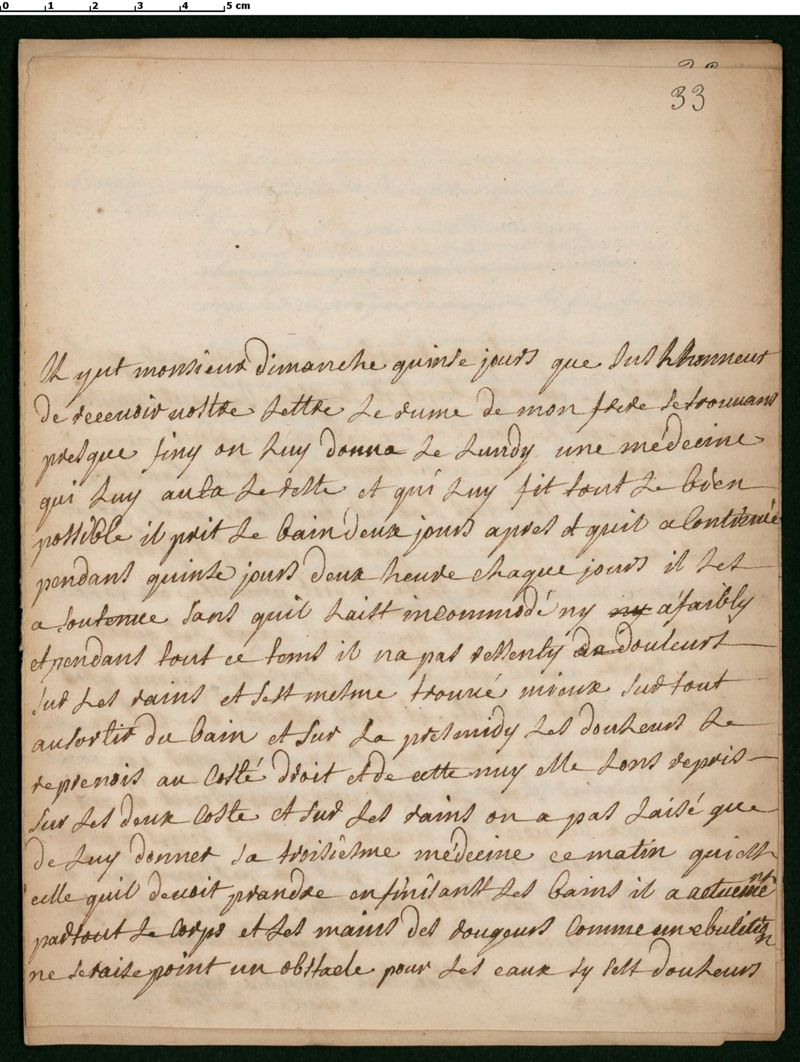 0 1 2 3 4 5 cm
33
Il y ut monsieur dimanche quinse jours que jus lhonneur
de recevoir vostre lettre le rume de mon frere se trouvans
presque finy on luy donna le lundy une médecine
qui luy auta le reste et qui luy fit tout le bien
possible il prit le bain deux jours apres et quil a continué
pendans quinse jours deux heure chaque jours il les
a soutenue sans quil lait incommodé ny ny afaibly
et pendans tout ce tems il na pas ressenty de douleurs
sur les rains et sest mesme trouvé mieux surtout
au sortir du bain et sur la presmidy les douleurs le
reprenois au costé droit et de cette nuy elle lons repris
sur les deux coste et sur les rains on a pas laisé que
de luy donner sa troisiesme médecine ce matin qui est
celle quil devoit prandre en finisant les bains il a actuement
partout le corps et les mains des rougeurs comme un ebulition
ne seraise point un obstacle pour les eaux sy sest douleurs